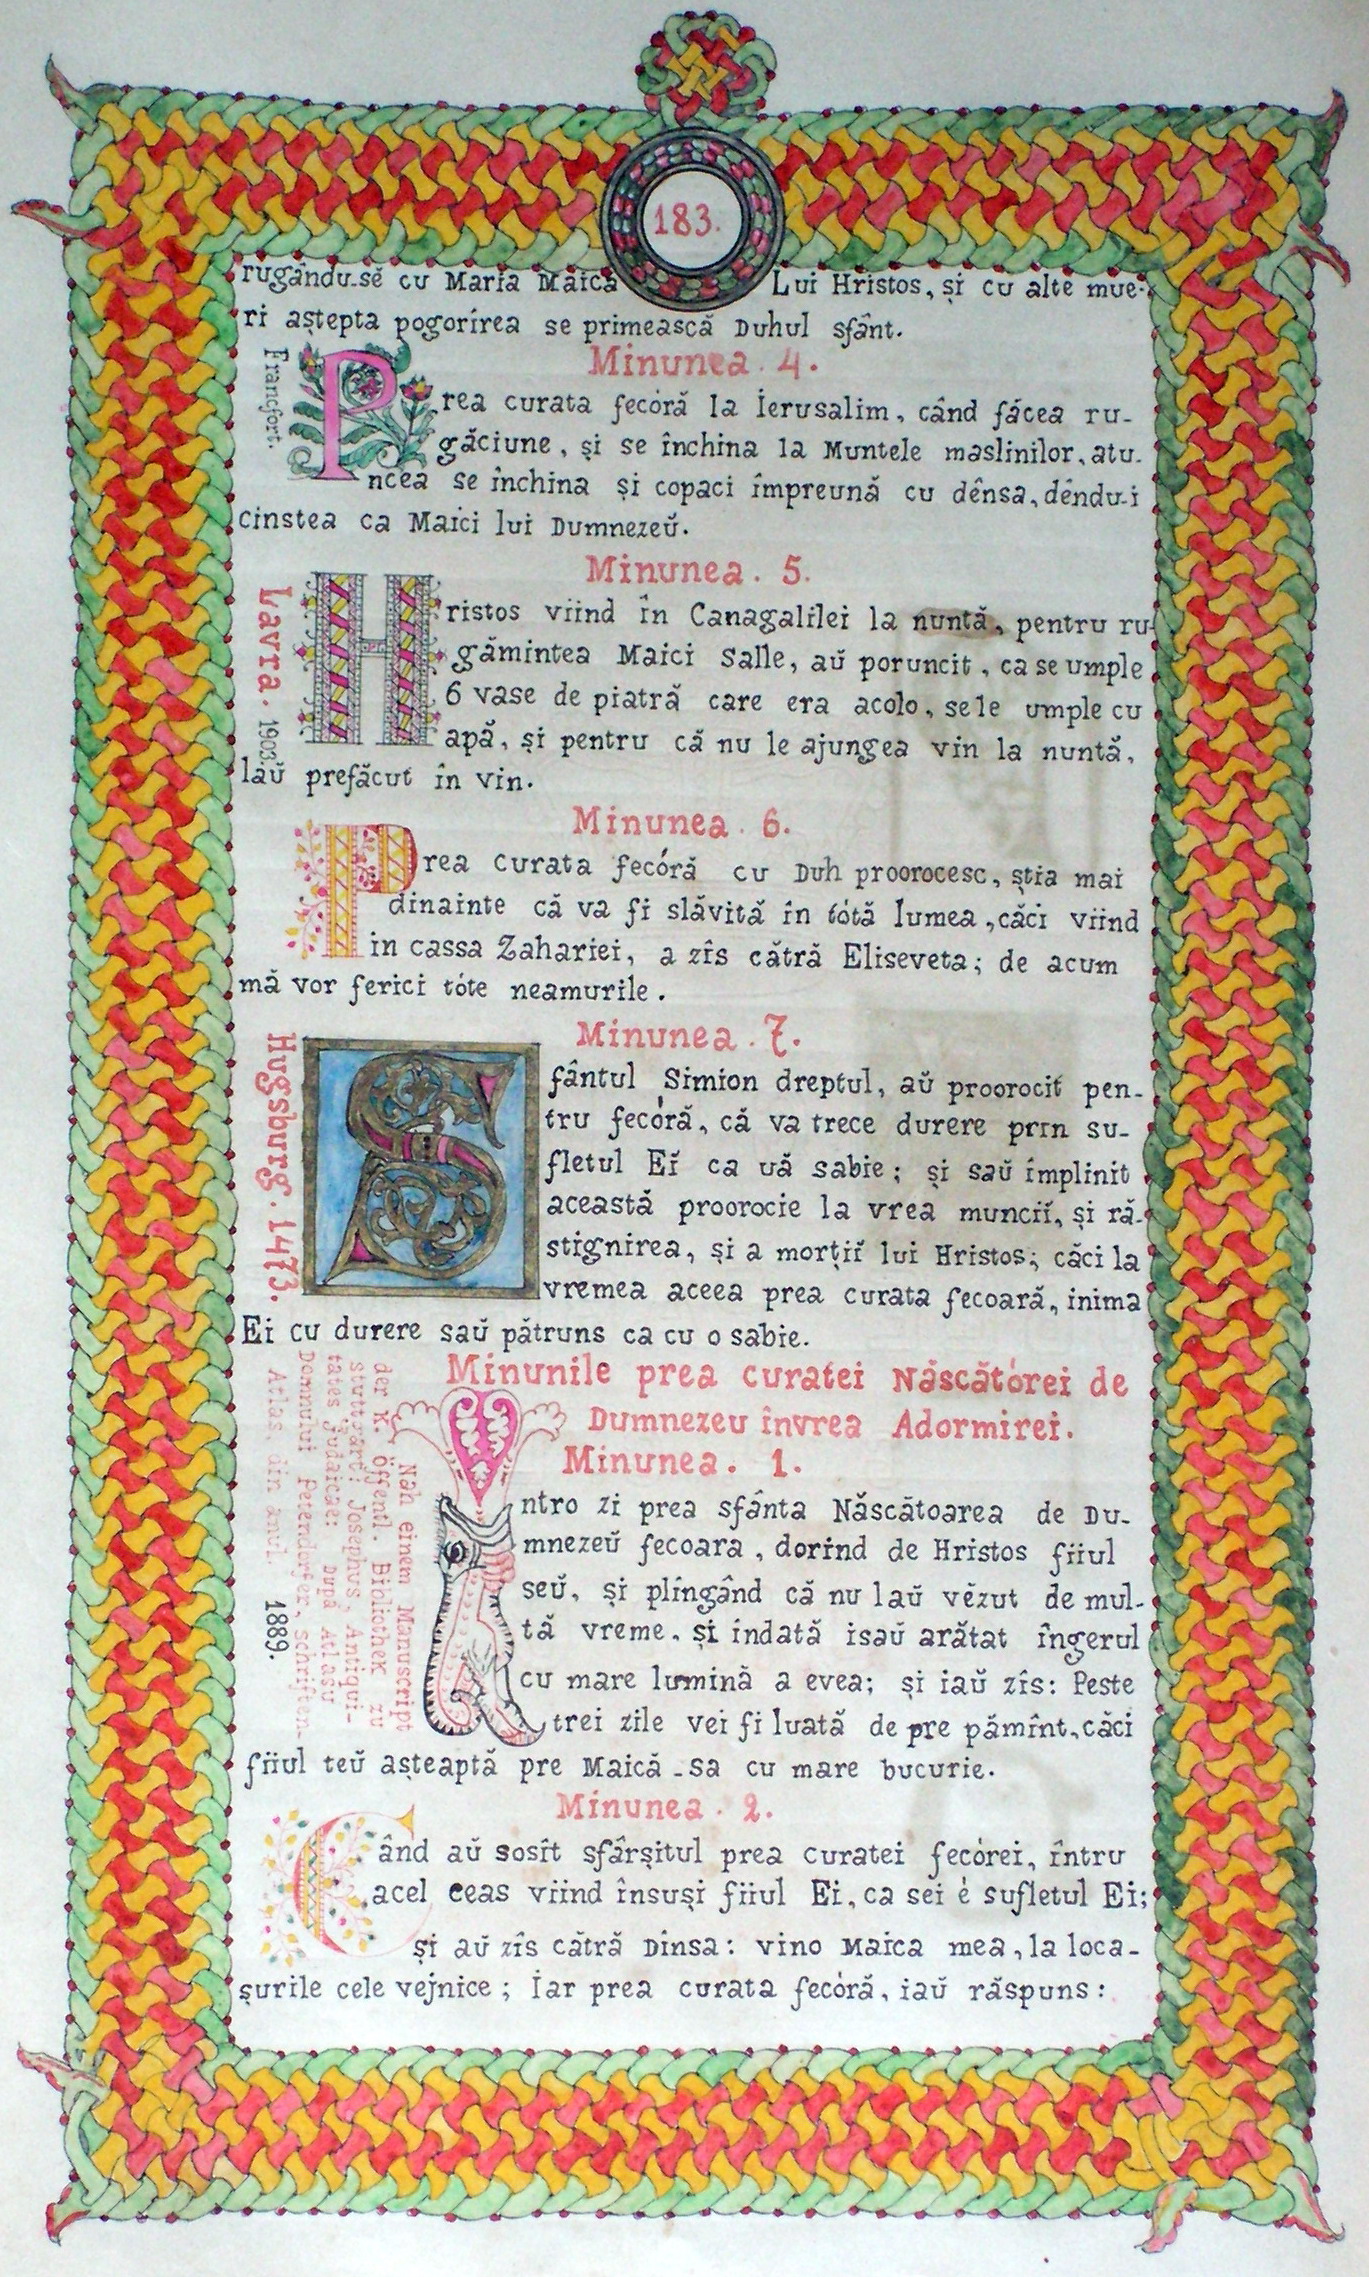 183.
rugându-sĕ cu Maria Maica Lui Hristos, și cu alte mue-
ri aștepta pogorîrea se primească Duhul sfânt.
Minunea. 4.
Francfort.
Prea curata fecóră la Ierusalim, când făcea ru-
găciune, și se închina la Muntele maslinilor, atu-
ncea se închina și copaci împreună cu dênsa, dêndu-i
cinstea ca Maici lui Dumnezeŭ.
Minunea. 5.
Lavra. 1903.
Hristos viind în Canagalilei la nuntă, pentru ru-
gămintea Maici Salle, aŭ poruncit, ca se umple
6 vase de piatră care era acolo, se le umple cu
apă, și pentru că nu le ajungea vin la nuntă,
laŭ prefăcut în vin.
Minunea. 6.
Prea curata fecóră cu Duh proorocesc, știa mai
dinainte că va fi slăvită în tótă lumea, căci viind
in cassa Zahariei, a zîs cătră Eliseveta; de acum
mă vor ferici tóte neamurile.
Minunea. 7.
Hugsburg. 1473.
Sfântul Simion dreptul, aŭ proorocit pen-
tru fecóră, că va trece durere prin su-
fletul Eĭ ca uă sabie; și saŭ împlinit
această proorocie la vrea munciĭ, și ră-
stignirea, și a morțiĭ lui Hristos; căci la
vremea aceea prea curata fecoară, inima
Ei cu durere saŭ pătruns ca cu o sabie.
Minunile prea curatei Născătórei de
Dumnezeu învrea Adormirei.
Minunea. 1.
Nah einem Manuscript
der K. Öffentl. Bibliothek zu
stuttgart: Josephus, Antiqui-
tates judaicae: După Atlasu
Domnului Petendorfer, schriften-
Atlas din anul. 1889.
Intro zi prea sfânta Născătoarea de Du-
mnezeŭ fecoara, dorind de Hristos fiiul
seŭ, și plîngând că nu laŭ vĕzut de mul-
tă vreme, și indată isaŭ arătat îngerul
cu mare lumină a evea; și iaŭ zîs: Peste
trei zile vei fi luată de pre pămînt, căci
fiiul teŭ așteaptă pre Maică-sa cu mare bucurie.
Minunea. 2.
Când aŭ sosit sfârșitul prea curatei fecórei, întru
acel ceas viind însuși fiiul Ei, ca sei é sufletul Ei;
și aŭ zîs cătră Dînsa: vino Maica mea, la loca-
șurile cele vejnice; Iar prea curata fecóră, iaŭ răspuns: